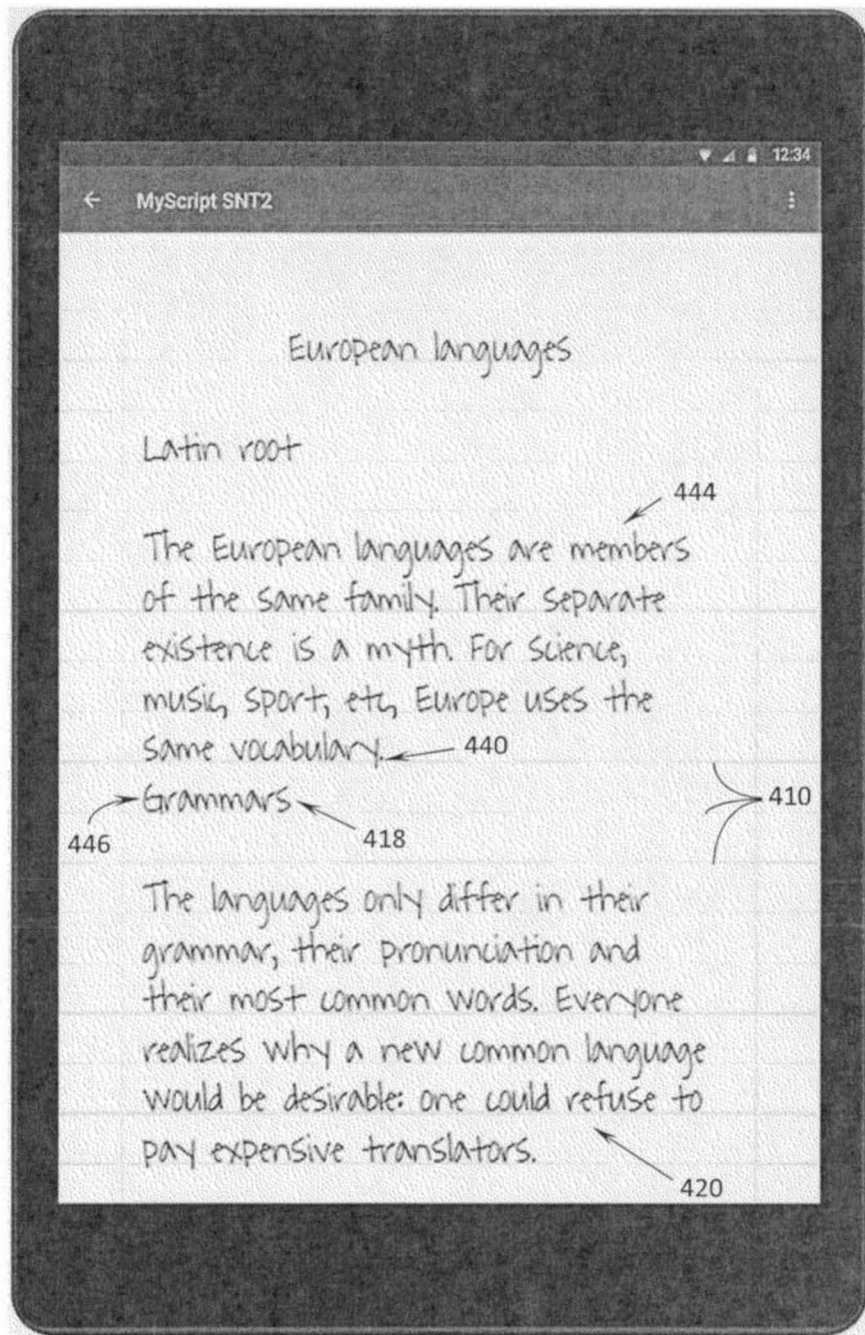 12:34
MyScript SNT2
European languages
Latin root
444
The European languages are members
of the same family. Their separate
existence is a myth. For science,
music, sport, etc, Europe uses the
same vocabulary.
440
Grammars
410
446
418
The languages only differ in their
grammar, their pronunciation and
their most common words. Everyone
realizes why a new common language
would be desirable: one could refuse to
pay expensive translators.
420